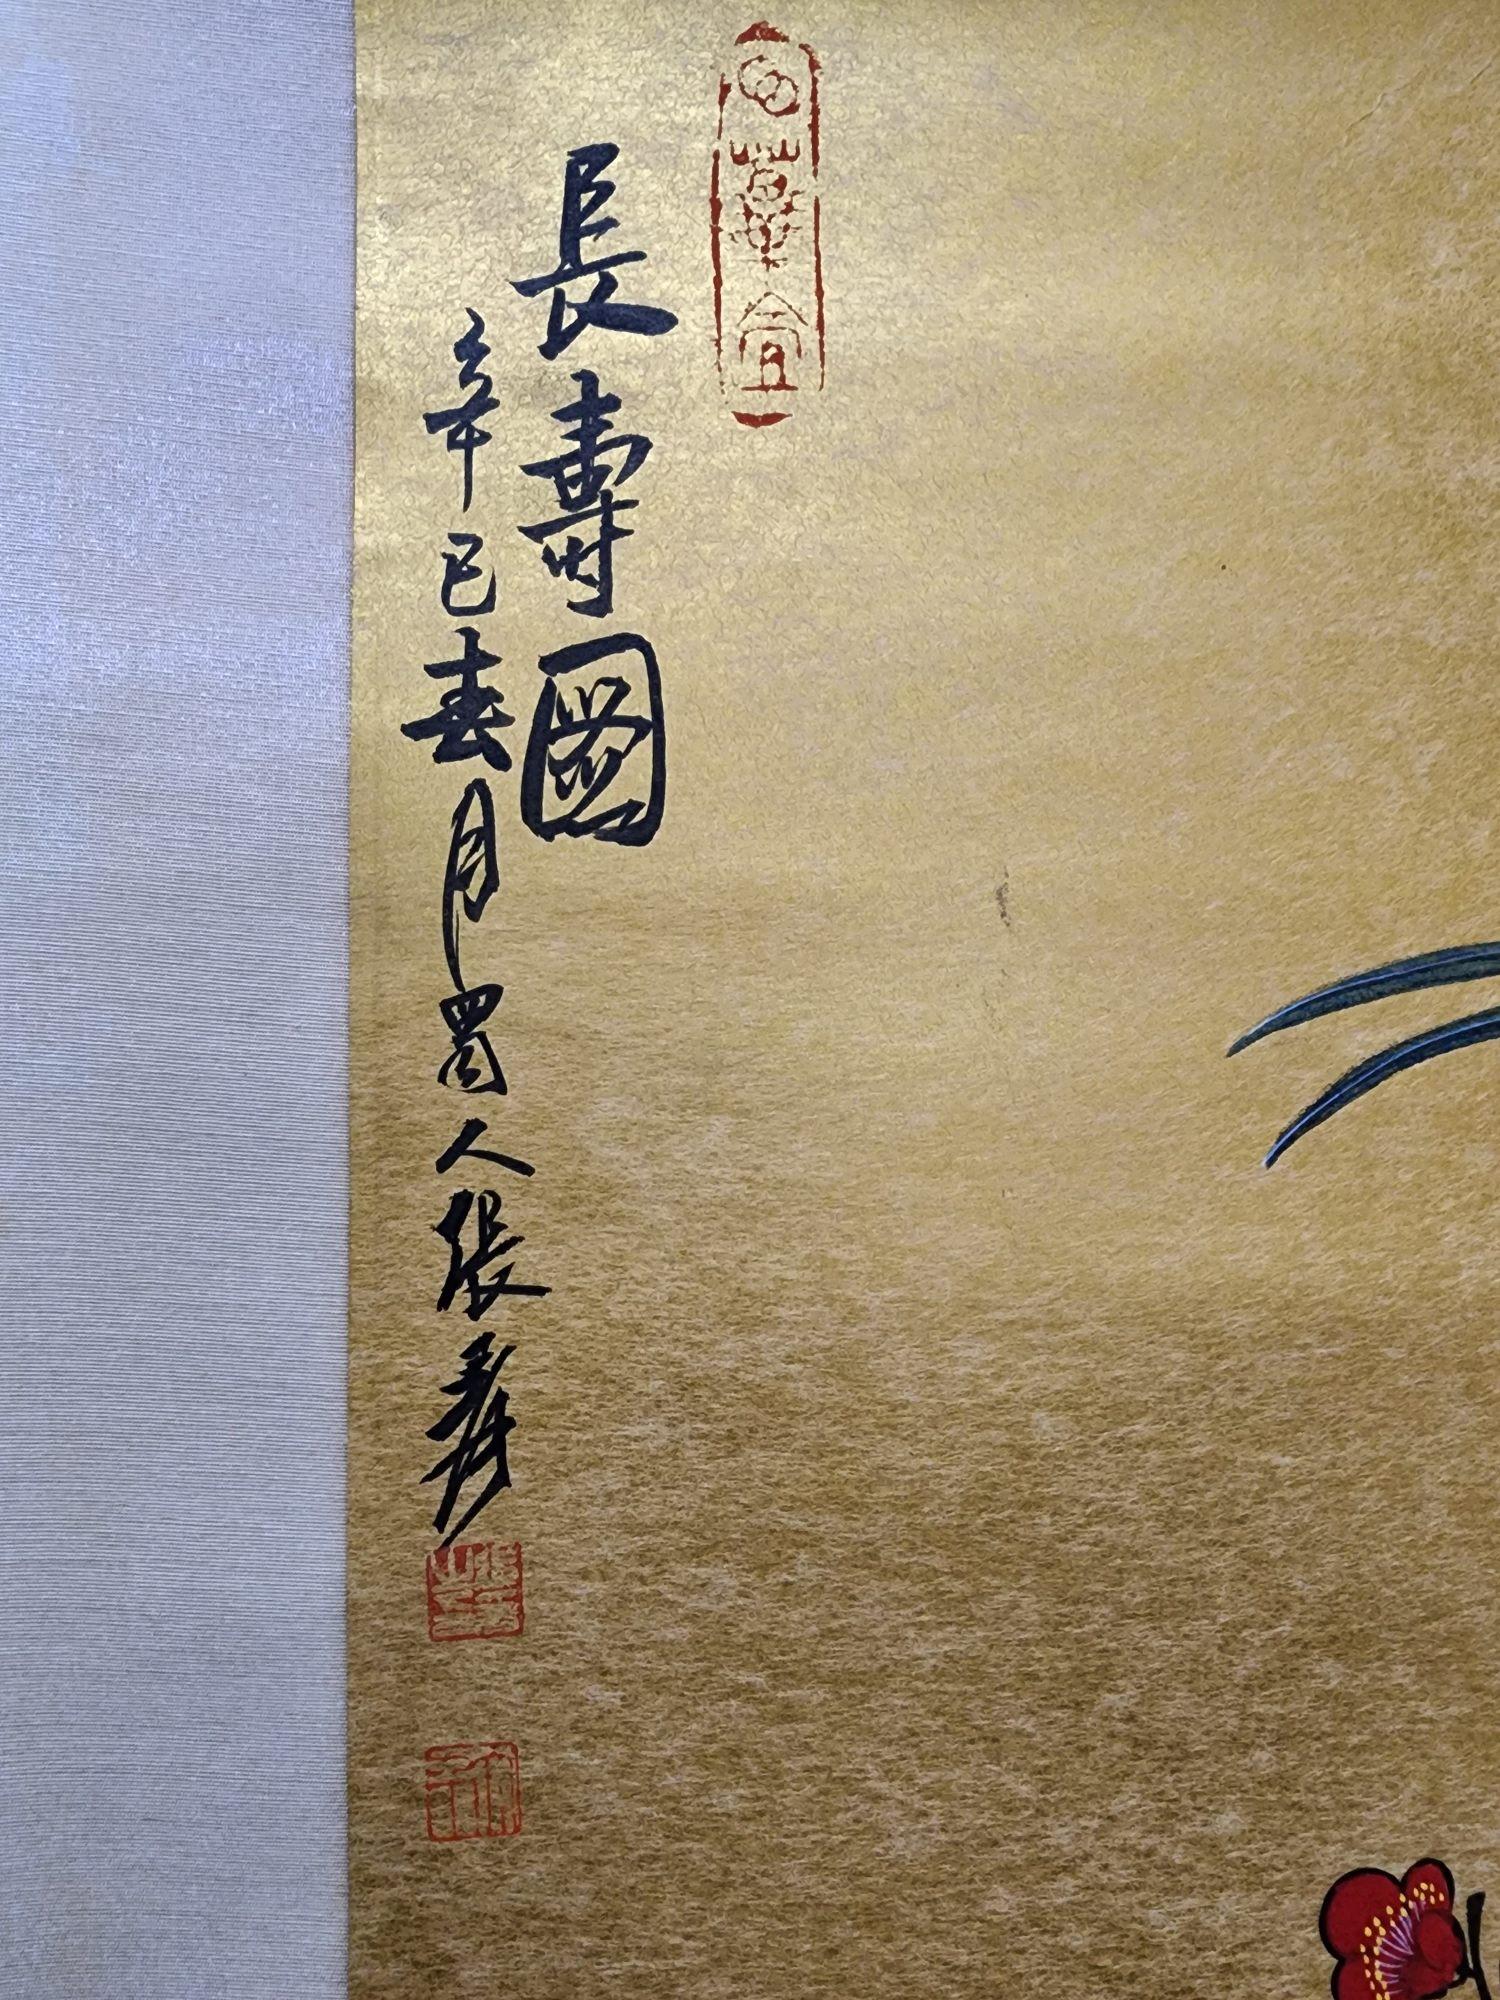 長壽圖
辛巳春月蜀人張爰